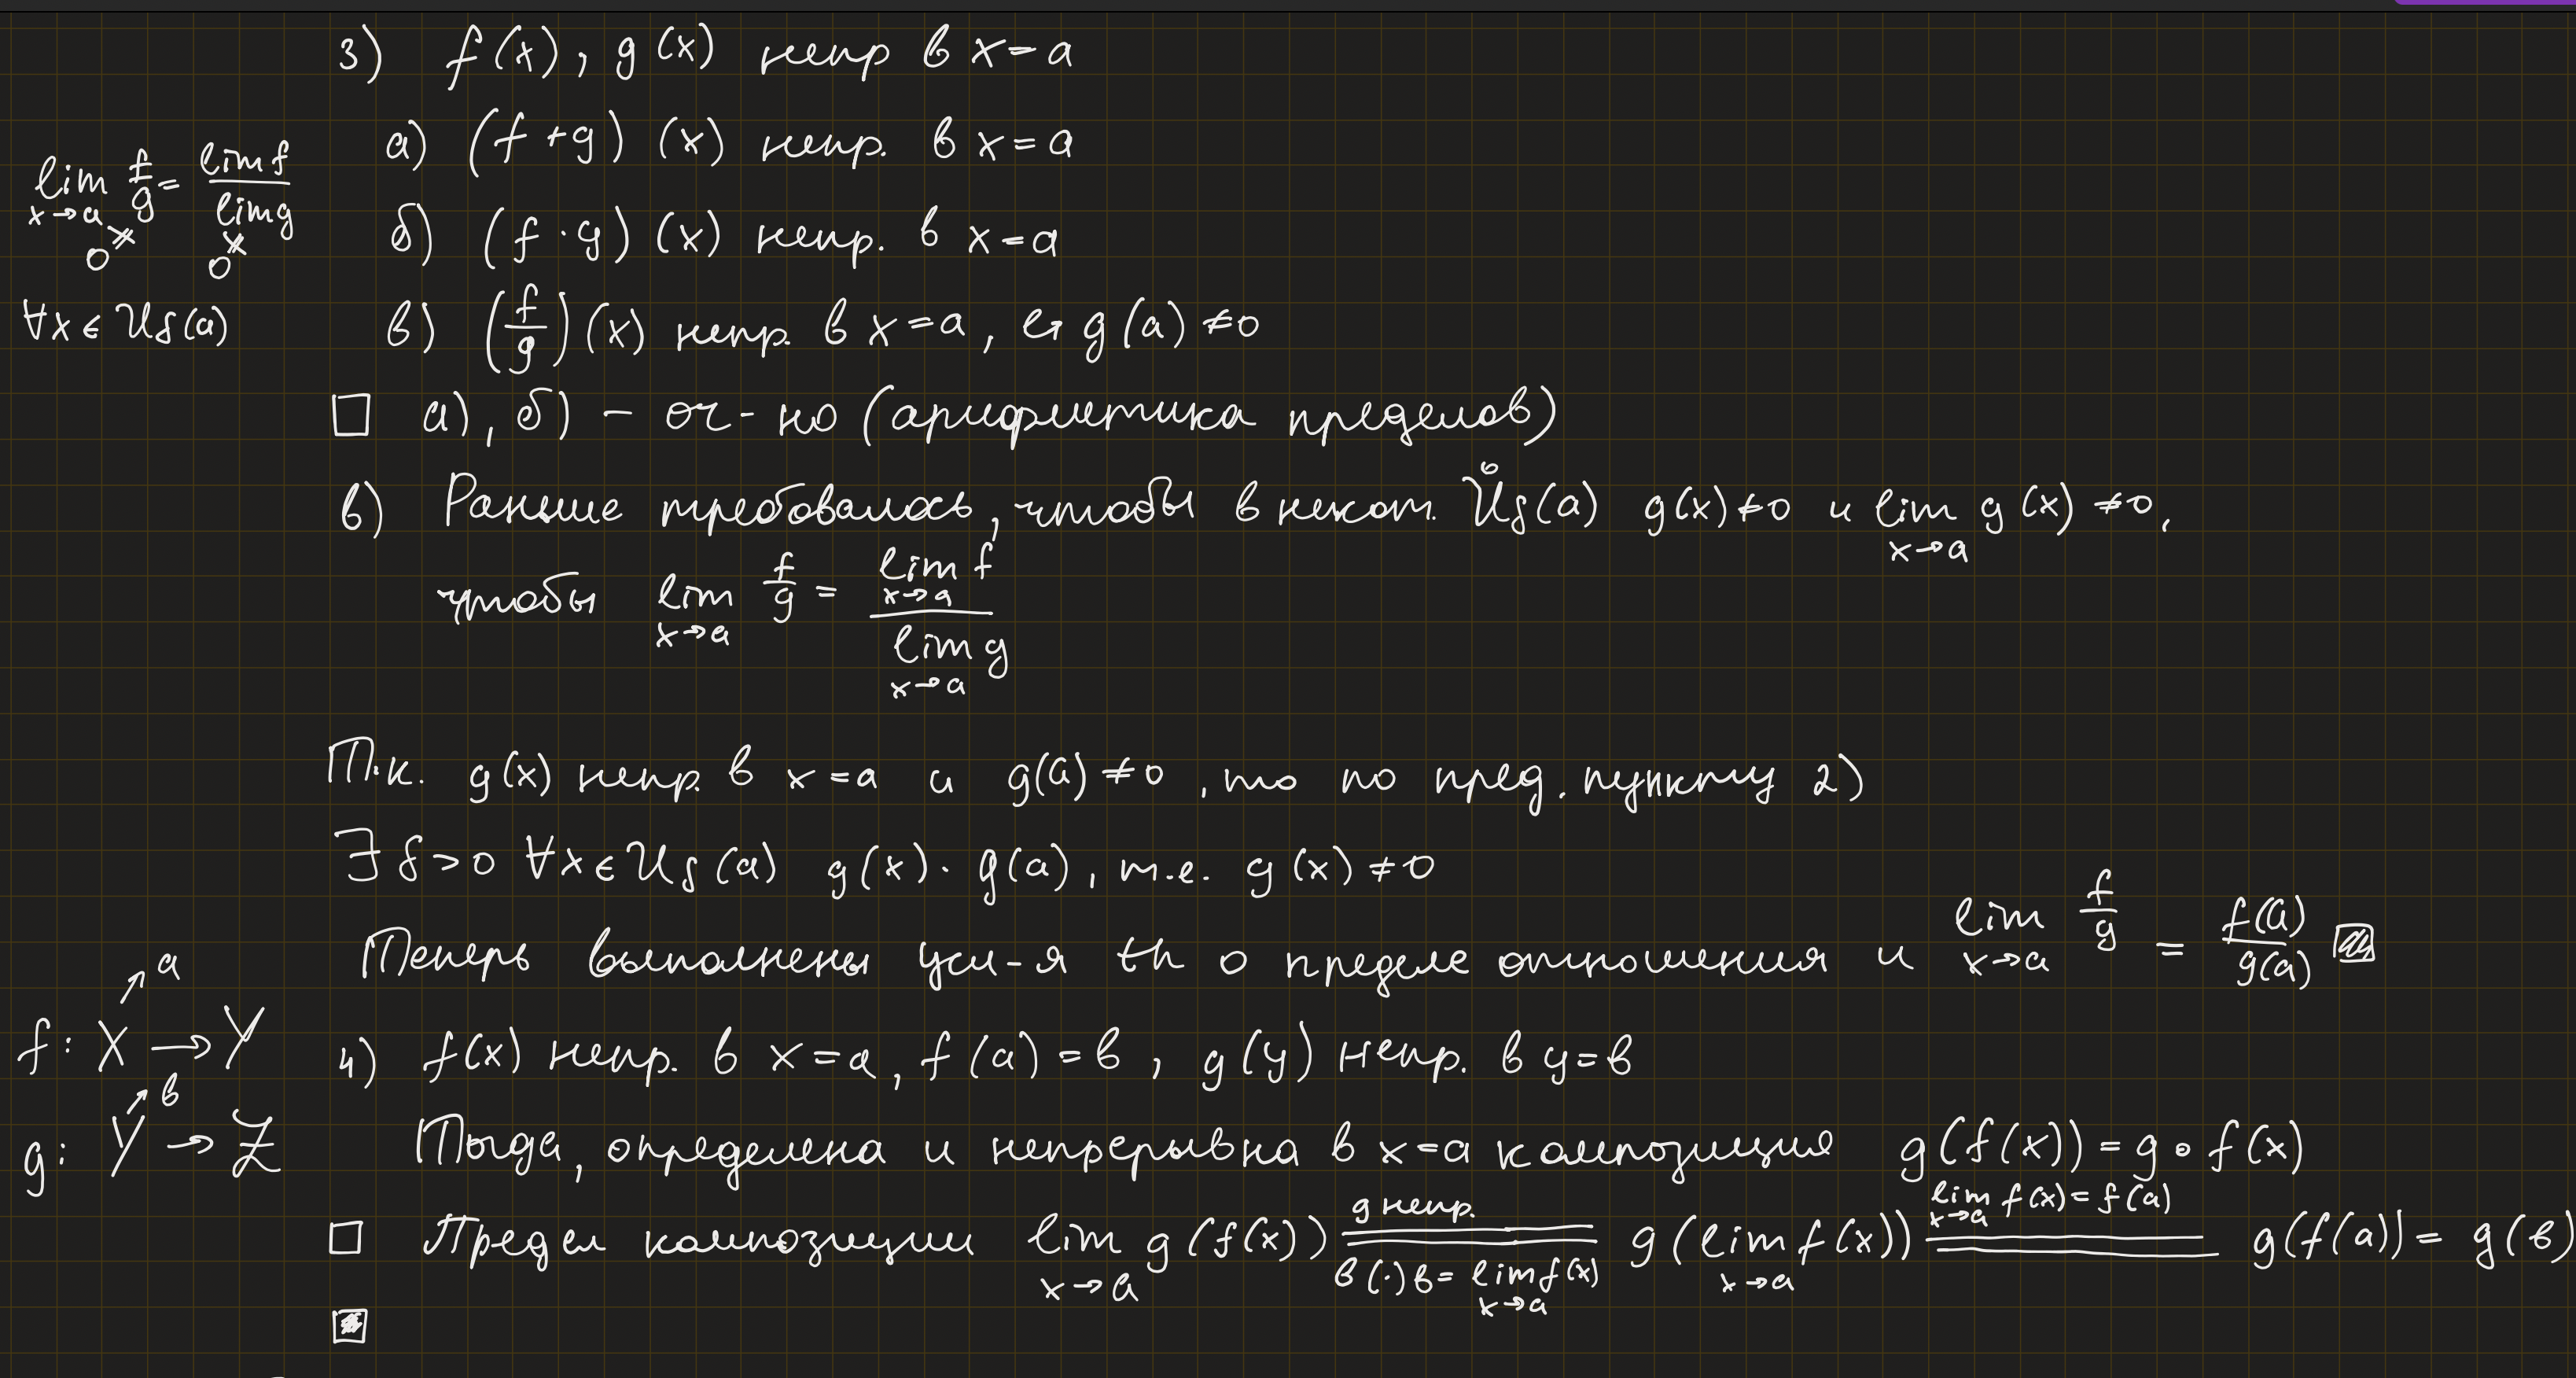 3) f(x), g(x) непр в x=a
а) (f+g)(x) непр. в x=a
lim x→a f/g = lim f / lim g
≠0 ≠0
б) (f·g)(x) непр. в x=a
∀x∈U_δ(a)
в) (f/g)(x) непр. в x=a, если g(a)≠0
□ а), б) – оч-но (арифметика пределов)
в) Раньше требовалось, чтобы в некот. Ů_δ(a) g(x)≠0 и lim x→a g(x)≠0,
чтобы lim x→a f/g = lim x→a f / lim x→a g
Т.к. g(x) непр. в x=a и g(a)≠0, то по пред. пункту 2)
∃δ>0 ∀x∈U_δ(a) g(x)·g(a), т.е. g(x)≠0
Теперь выполнены усл-я th о пределе отношения и lim x→a f/g = f(a)/g(a) ▨
f: X → Y
a
4) f(x) непр. в x=a, f(a)=в, g(y) непр. в y=в
g: Y → Z
в
Тогда, определена и непрерывна в x=a композиция g(f(x)) = g∘f(x)
□ Предел композиции lim x→a g(f(x)) = (g непр. в (·) в = lim x→a f(x)) g(lim x→a f(x)) = (lim x→a f(x) = f(a)) g(f(a)) = g(в)
▨